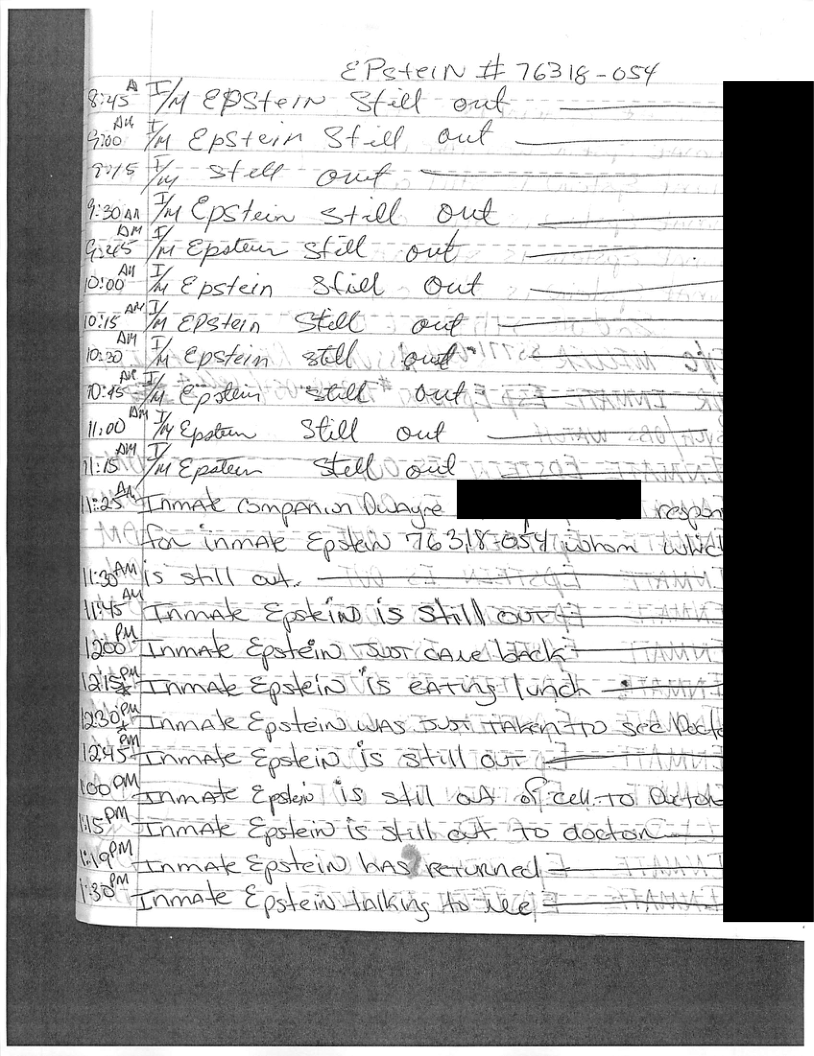 EPstein # 76318-054
8:45 A I/M EPStein Still out
9:00 AM I/M Epstein Still out
9:15 I/M still out
9:30 AM I/M Epstein still out
9:45 AM I/M Epstein still out
10:00 AM I/M Epstein still out
10:15 AM I/M EPStein Still out
10:30 AM I/M Epstein still out
10:45 AM I/M Epstein still out
11:00 AM I/M Epstein Still out
11:15 AM I/M Epstein Still out
11:25 AM Inmate Companion Dwayne respon
for inmate Epstein 76318-054 whom whic
11:30 AM is still out.
11:45 AM Inmate Epstein is still OUT
12:00 PM Inmate Epstein JUST CAME back
12:15 PM * Inmate Epstein is eating lunch
12:30 PM * Inmate Epstein was JUST TAKEN TO see Docto
12:45 PM Inmate Epstein is still OUT
1:00 PM Inmate Epstein is still out of cell to Docto
1:15 PM Inmate Epstein is still out to doctor
1:19 PM Inmate Epstein has returned
1:30 PM Inmate Epstein talking to me